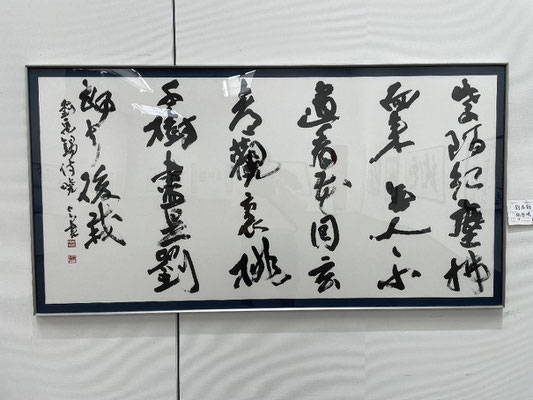 紫陌紅塵拂
面来無人不
道看花回玄
都觀裏桃
千樹盡是劉
郎去後栽
劉禹錫詩